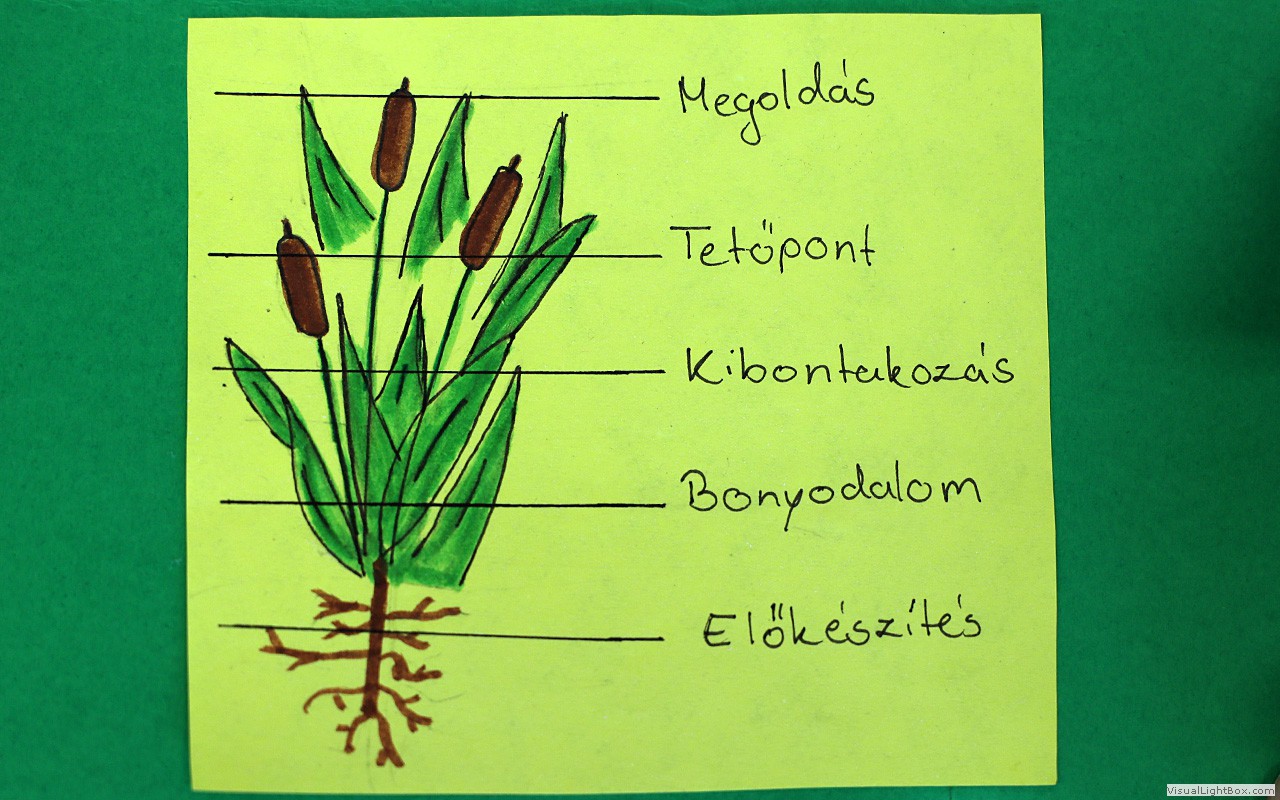 Megoldás
Tetőpont
Kibontakozás
Bonyodalom
Előkészítés
VisualLightBox.com